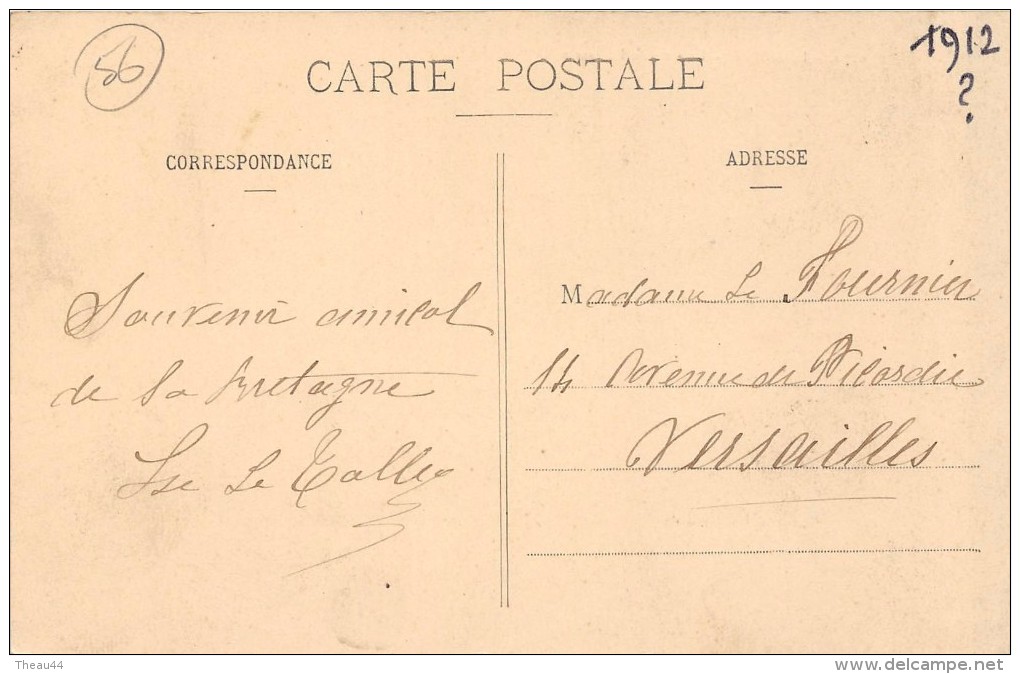 56
1912
?
CARTE POSTALE
CORRESPONDANCE
Souvenir amical
de la Bretagne
Le
ADRESSE
Madame Le Fournier
14 Avenue de Picardie
Versailles
Theau44
www.delcampe.net